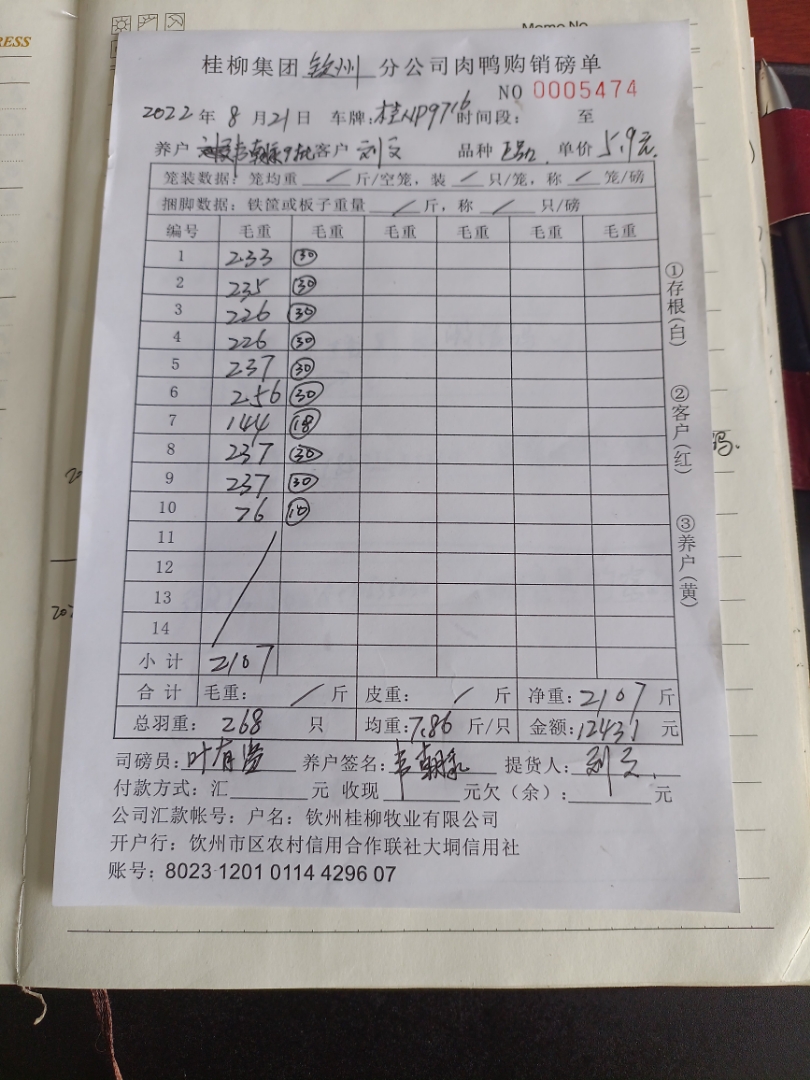 RESS
Memo No.
桂柳集团 钦州 分公司肉鸭购销磅单
NO 0005474
2022 年 8 月 21 日 车牌: 桂NP9716 时间段: 至
养户 韦朝 9批 客户 刘文 品种 单价 5.9元.
笼装数据: 笼均重 / 斤/空笼, 装 / 只/笼, 称 / 笼/磅
捆脚数据: 铁筐或板子重量 / 斤, 称 / 只/磅
编号 毛重 毛重 毛重 毛重 毛重 毛重
1 233 30
2 235 30
3 226 30
4 226 30
5 237 30
6 256 30
7 144 18
8 237 30
9 237 30
10 76 10
11
12
13
14
小 计 2107
合 计 毛重: / 斤 皮重: / 斤 净重: 2107 斤
总羽重: 268 只 均重: 7.86 斤/只 金额: 12431 元
司磅员: 叶有 养户签名: 韦朝 提货人: 刘文.
付款方式: 汇 元 收现 元欠(余): 元
公司汇款帐号: 户名: 钦州桂柳牧业有限公司
开户行: 钦州市区农村信用合作联社大垌信用社
账号: 8023 1201 0114 4296 07
①存根(白)
②客户(红)
③养户(黄)
码.